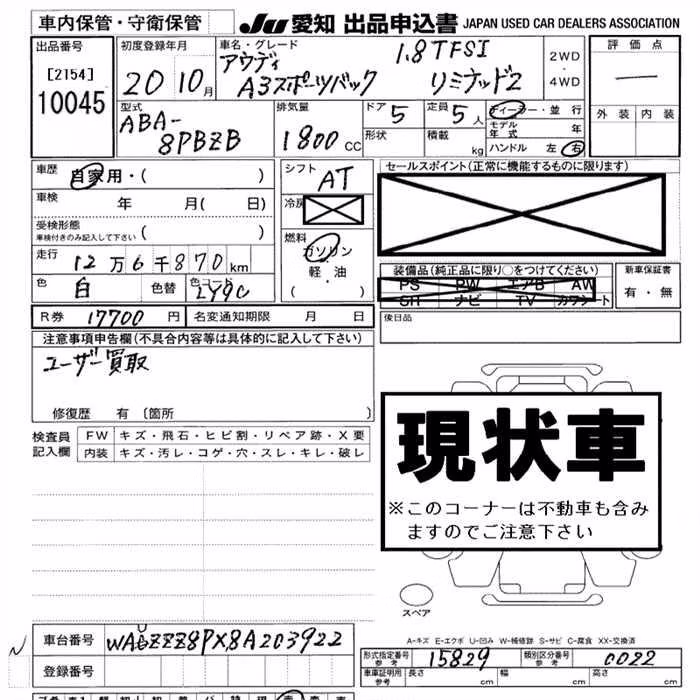 車内保管・守衛保管
JU 愛知 出品申込書 JAPAN USED CAR DEALERS ASSOCIATION
出品番号
[2154]
10045
初度登録年月
20 10月
車名・グレード
アウディ 1.8TFSI
A3スポーツバック リミテッド2
2WD
・
4WD
評価点
外装 内装
型式
ABA-
8PBZB
排気量
1800 CC
ドア 5
形状
定員 5 人
積載 kg
ディーラー・並行
モデル年式 年
ハンドル 左 右
車歴 自家用・( )
車検 年 月( 日)
受検形態
車検付きのみ記入して下さい ( )
走行 12万6千870km
色 白 色替 色コード
R券 17700 円 名変通知期限 月 日
シフト AT
冷房
燃料
ガソリン
軽・油
( )
セールスポイント(正常に機能するものに限ります)
装備品(純正品に限り○をつけてください)
PS PW エアB AW
SR ナビ TV カワシート
新車保証書
有・無
後日品
注意事項申告欄(不具合内容等は具体的に記入して下さい)
ユーザー買取
修復歴 有〔箇所 〕
検査員記入欄
FW キズ・飛石・ヒビ割・リペア跡・X要
内装 キズ・汚レ・コゲ・穴・スレ・キレ・破レ
現状車
※このコーナーは不動車も含み
ますのでご注意下さい
スペア
A-キズ E-エクボ U-凹み W-補修跡 S-サビ C-腐食 XX-交換済
車台番号 WAUZZZ8PX8A203922
登録番号
形式指定番号 参考 15829 類別区分番号 参考 0022
車庫証明用 参考 長さ cm 幅 cm 高さ cm